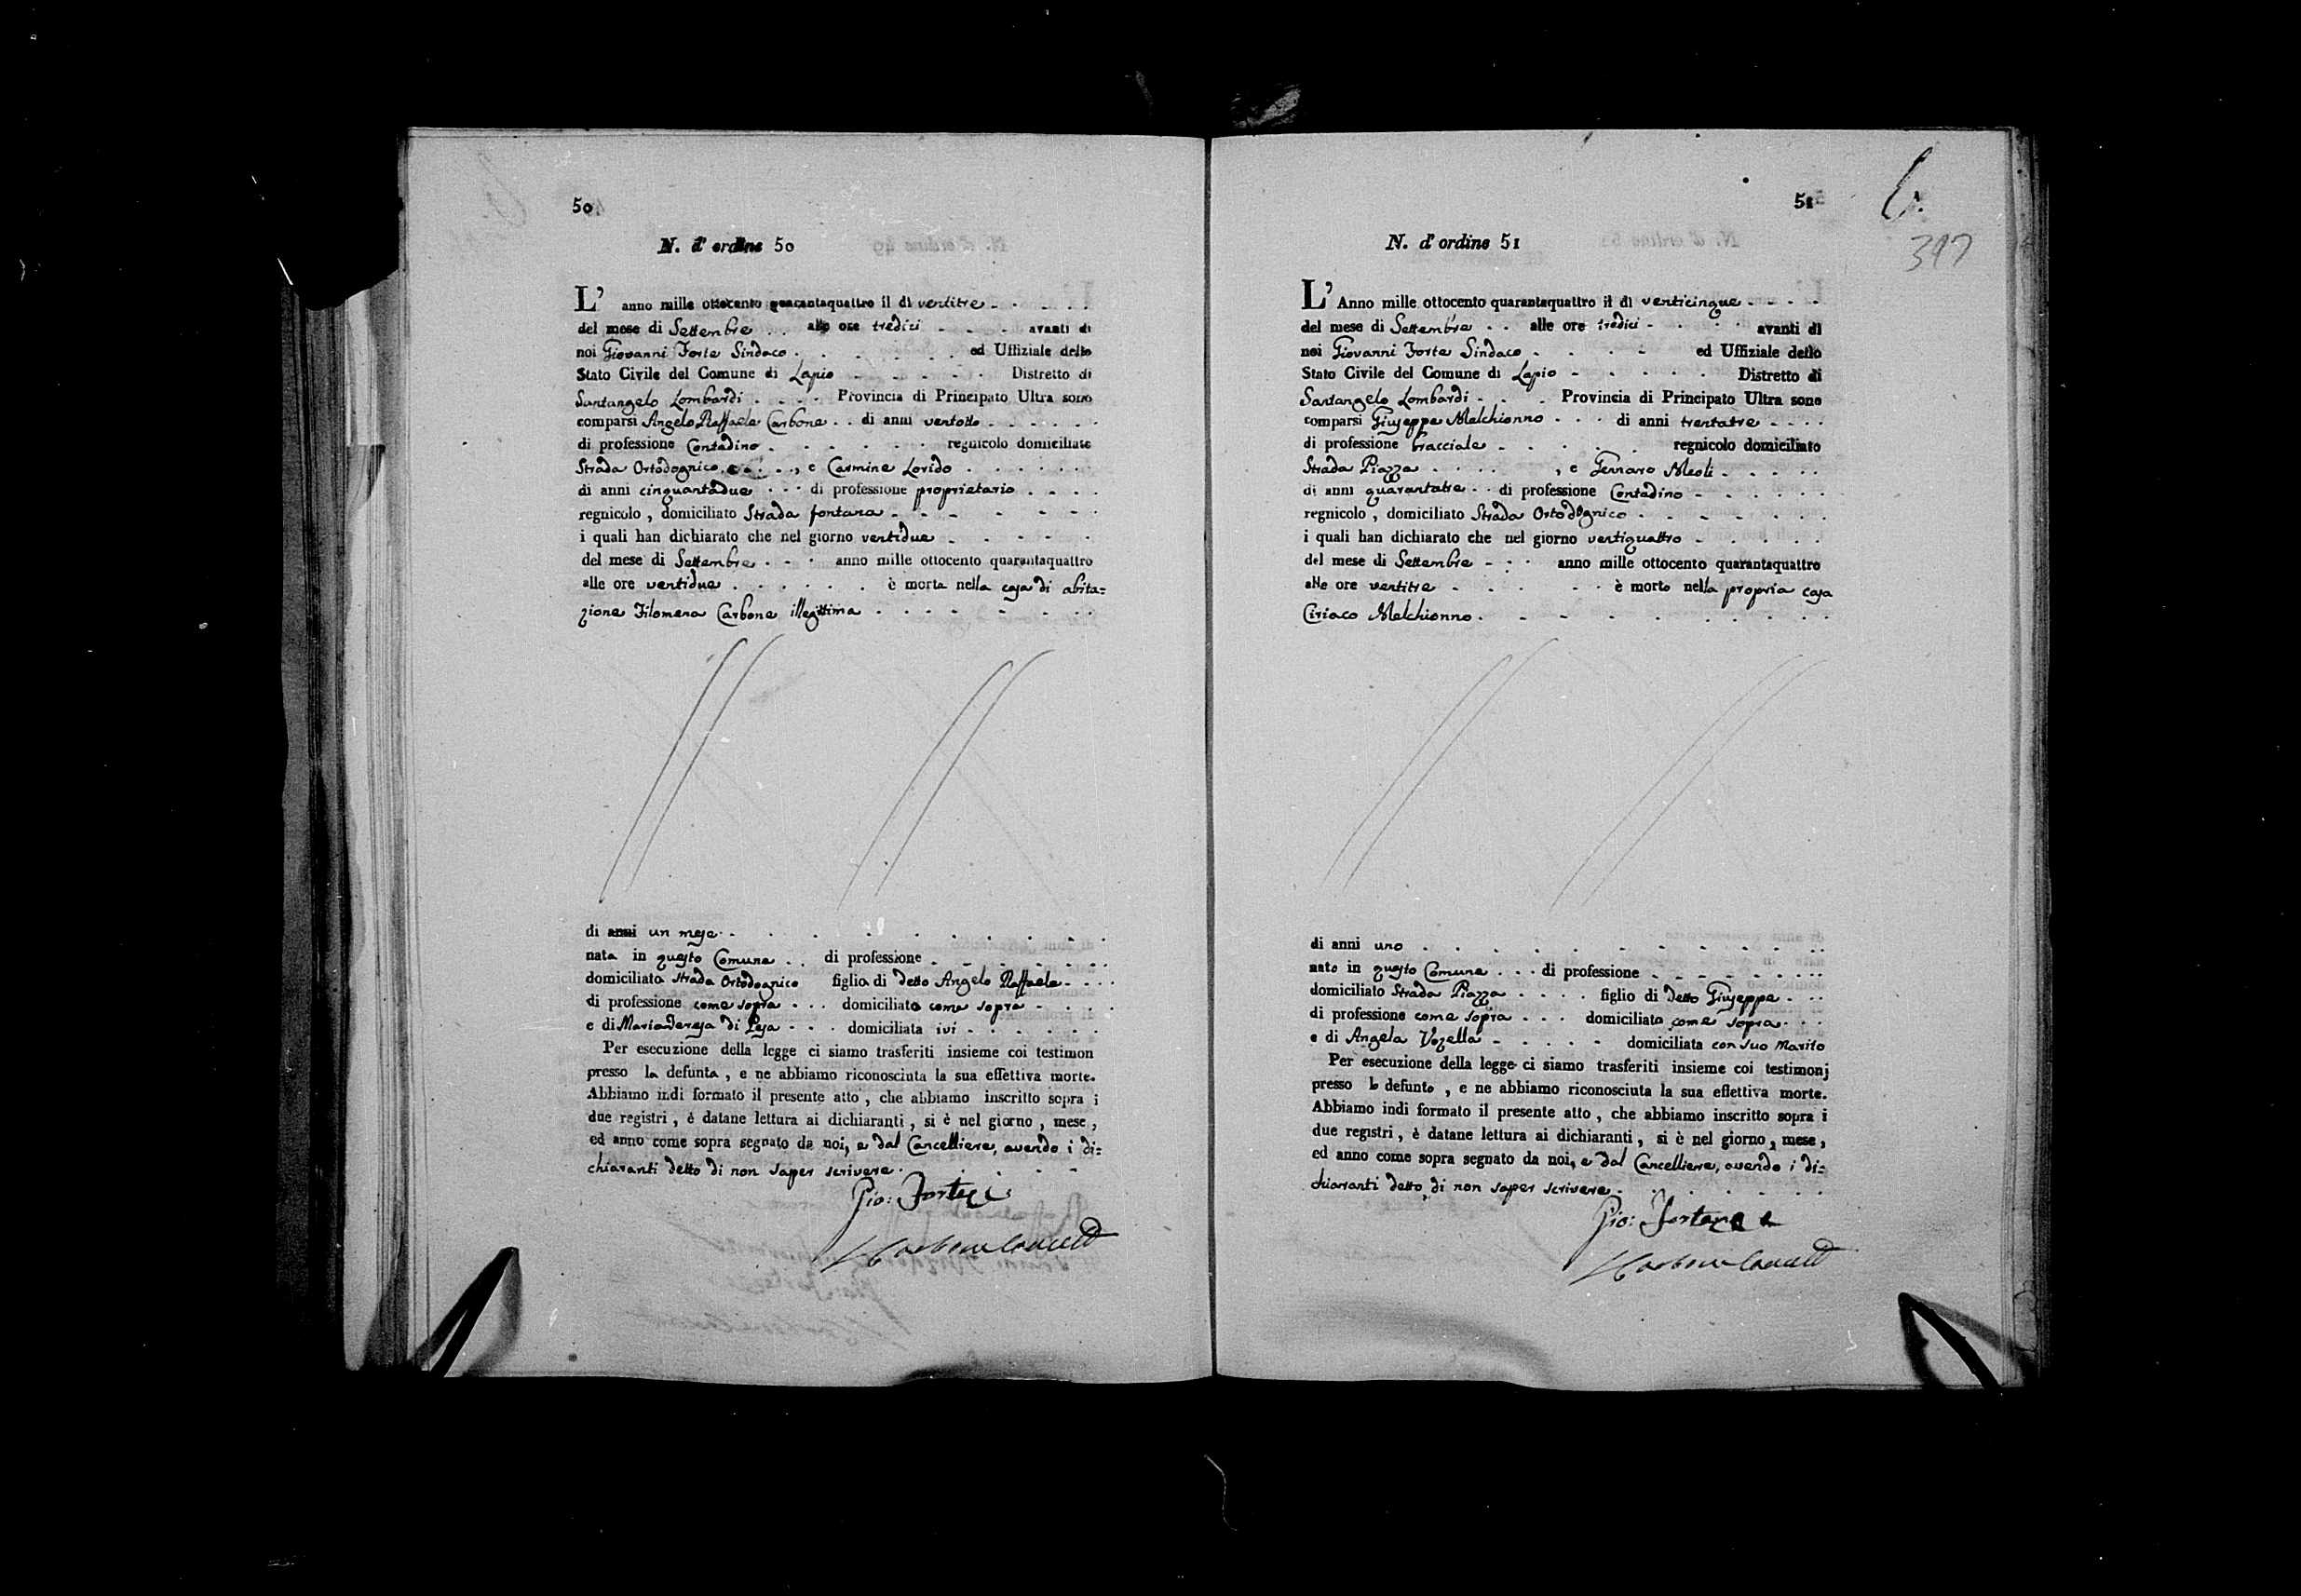 50
N. d' ordine 50
L' anno mille ottocento quarantaquattro il dì ventitre
del mese di Settembre alle ore tredici avanti di
noi Giovanni Forte Sindaco ed Uffiziale dello
Stato Civile del Comune di Lapio Distretto di
Santangelo Lombardi Provincia di Principato Ultra sono
comparsi Angelo Raffaele Carbone di anni ventotto
di professione Contadino regnicolo domiciliato
Strada Ortodognico, e Carmine Lorido
di anni cinquantadue di professione proprietario
regnicolo, domiciliato Strada fontana
i quali han dichiarato che nel giorno ventidue
del mese di Settembre anno mille ottocento quarantaquattro
alle ore ventidue è morta nella casa di abita=
zione Filomena Carbone illegittima
di anni un mese
nata in questo Comune di professione
domiciliata Strada Ortodognico figlia di detto Angelo Raffaele
di professione come sopra domiciliato come sopra
e di Mariateresa di Pesa domiciliata ivi
Per esecuzione della legge ci siamo trasferiti insieme coi testimon
presso la defunta, e ne abbiamo riconosciuta la sua effettiva morte.
Abbiamo indi formato il presente atto, che abbiamo inscritto sopra i
due registri, è datane lettura ai dichiaranti, si è nel giorno, mese,
ed anno come sopra segnato da noi, e dal Cancelliere, avendo i di=
chiaranti detto di non saper scrivere.
Gio: Forte
51
N. d' ordine 51
L' Anno mille ottocento quarantaquattro il dì venticinque
del mese di Settembre alle ore tredici avanti di
noi Giovanni Forte Sindaco ed Uffiziale dello
Stato Civile del Comune di Lapio Distretto di
Santangelo Lombardi Provincia di Principato Ultra sono
comparsi Giuseppe Melchionno di anni trentatre
di professione bracciale regnicolo domiciliato
Strada Piazza, e Gennaro Meoli
di anni quarantatre di professione Contadino
regnicolo, domiciliato Strada Ortodognico
i quali han dichiarato che nel giorno ventiquattro
del mese di Settembre anno mille ottocento quarantaquattro
alle ore ventitre è morto nella propria casa
Ciriaco Melchionno
di anni uno
nato in questo Comune di professione
domiciliato Strada Piazza figlio di detto Giuseppe
di professione come sopra domiciliato come sopra
e di Angela Vozella domiciliata con suo Marito
Per esecuzione della legge ci siamo trasferiti insieme coi testimonj
presso lo defunto, e ne abbiamo riconosciuta la sua effettiva morte.
Abbiamo indi formato il presente atto, che abbiamo inscritto sopra i
due registri, è datane lettura ai dichiaranti, si è nel giorno, mese,
ed anno come sopra segnato da noi, e dal Cancelliere, avendo i di=
chiaranti detto di non saper scrivere.
Gio: Forte